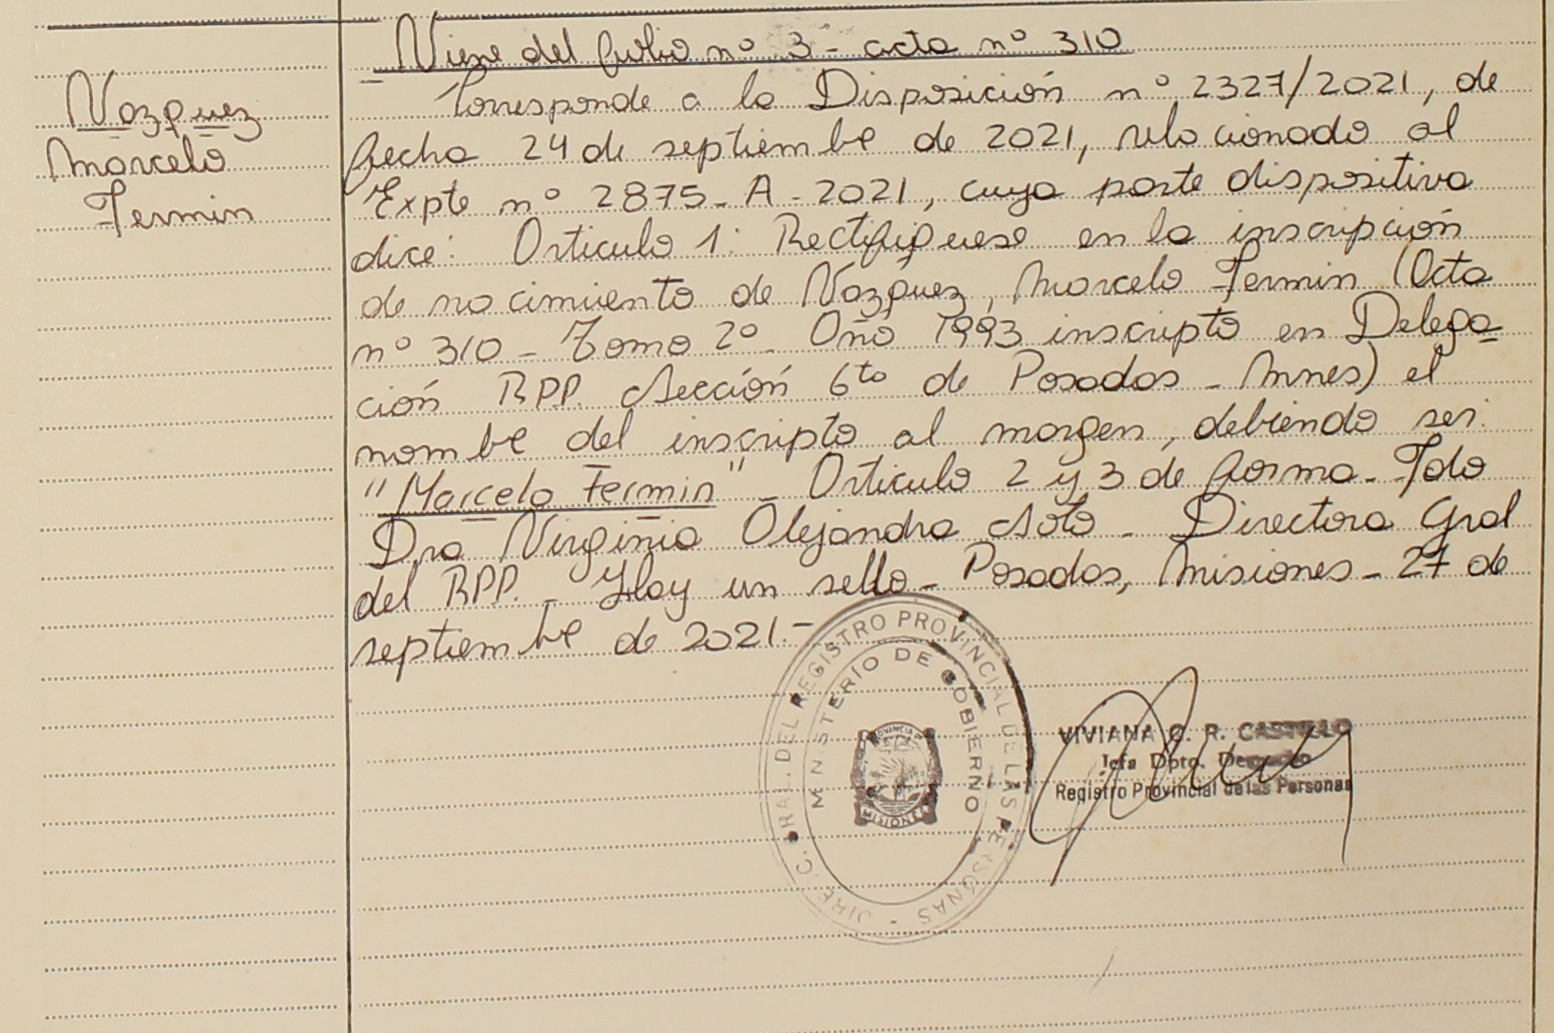 Viene del folio nº 3 - acta nº 310
Vazquez
Marcelo
Fermin
Corresponde a la Disposición nº 2327/2021, de
fecha 24 de septiembre de 2021, relacionado al
Expte nº 2875 - A - 2021, cuya parte dispositiva
dice: Articulo 1: Rectifiquese en la inscripción
de nacimiento de Vazquez, Marcelo Fermin (Acta
nº 310 - Tomo 2º - Año 1993 inscripto en Delega-
ción R.P.P. Sección 6ta de Posadas - Mnes) el
nombre del inscripto al margen, debiendo ser:
"Marcelo Fermin" - Articulo 2 y 3 de forma - Fdo
Dra Virginia Alejandra Soto - Directora Gral
del RPP. - Hay un sello - Posadas, Misiones - 27 de
septiembre de 2021.-
DIREC. GRAL. DEL REGISTRO PROVINCIAL DE LAS PERSONAS -
MINISTERIO DE GOBIERNO
PROVINCIA DE
MISIONES
VIVIANA C. R. CASTELLO
Jefa Dpto. Despacho
Registro Provincial de las Personas